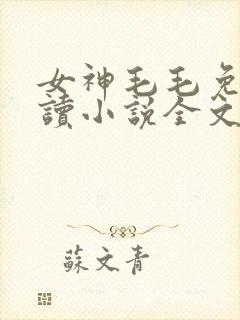 女神毛毛免
讀小說全文
蘇文青